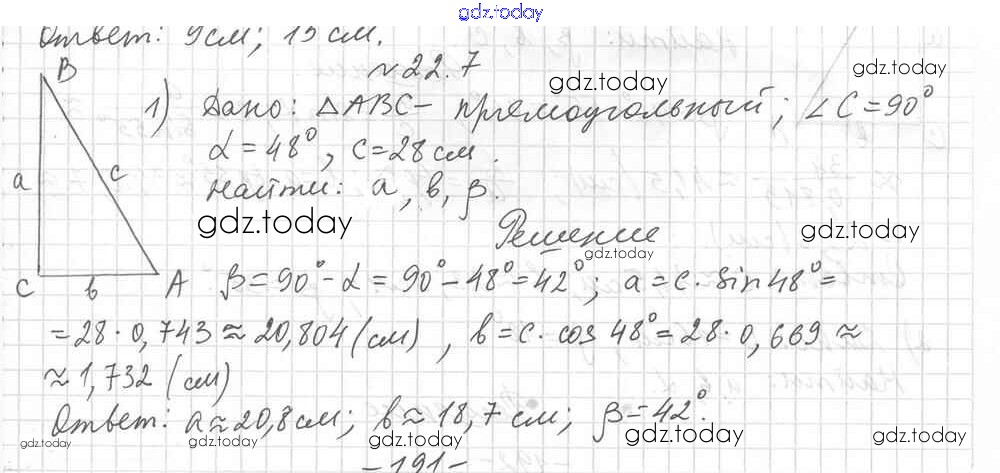 gdz.today
Ответ: 9см; 15 см.
№22.7
gdz.today
gdz.today
B
1) Дано: △ABC - прямоугольный; ∠C=90°
α=48°, c=28 см.
a
c
Найти: a, в, β.
gdz.today
gdz.today
Решение
gdz.today
C
в
A
β=90°-α=90°-48°=42°; a=c·sin48°=
=28·0,743≈20,804(см), в=c·cos48°=28·0,669≈
≈1,732 (см)
Ответ: a≈20,8см; в≈18,7см; β=42°.
gdz.today
gdz.today
gdz.today
gdz.today
gdz.today
-191-